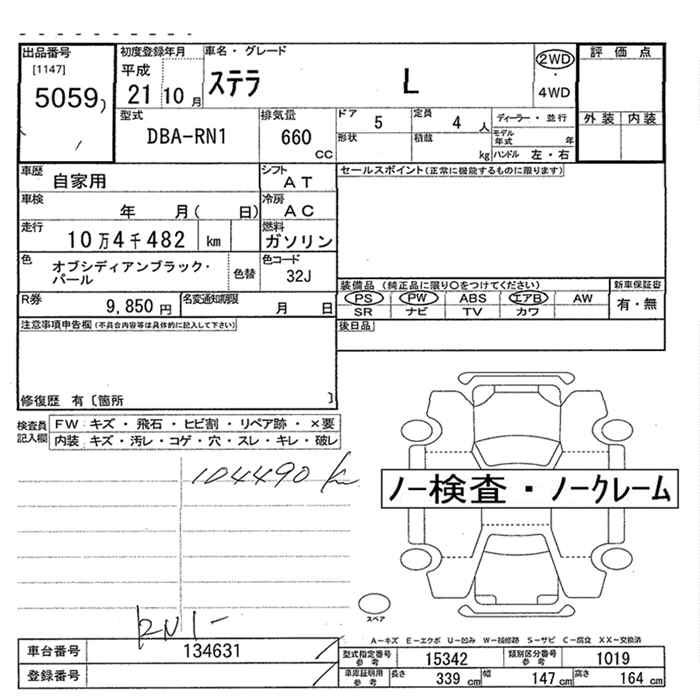 出品番号
[1147]
5059
初度登録年月
平成
21 10 月
車名・グレード
ステラ L
2WD
・
4WD
評価点
外装 内装
型式
DBA-RN1
排気量
660
cc
ドア
5
定員
4 人
形状
積載
kg
ディーラー・並行
モデル年式 年
ハンドル 左・右
車歴
自家用
シフト
AT
車検
年 月( 日)
冷房
AC
走行
10万4千482 km
燃料
ガソリン
色
オブシディアンブラック・
パール
色替
色コード
32J
R券
9,850 円
名変通知期限
月 日
セールスポイント(正常に機能するものに限ります)
装備品 (純正品に限り○をつけてください)
PS PW ABS エアB AW
SR ナビ TV カワ
新車保証書
有・無
後日品
注意事項申告欄(不具合内容等は具体的に記入して下さい)
修復歴 有〔箇所 〕
検査員
記入欄
FW キズ・飛石・ヒビ割・リペア跡・×要
内装 キズ・汚レ・コゲ・穴・スレ・キレ・破レ
104490 km
ノー検査・ノークレーム
スペア
RN1-
A-キズ E-エクボ U-凹み W-補修跡 S-サビ C-腐食 XX-交換済
車台番号
134631
登録番号
型式指定番号
参考
15342
類別区分番号
参考
1019
車庫証明用
参考
長さ 339 cm
幅 147 cm
高さ 164 cm